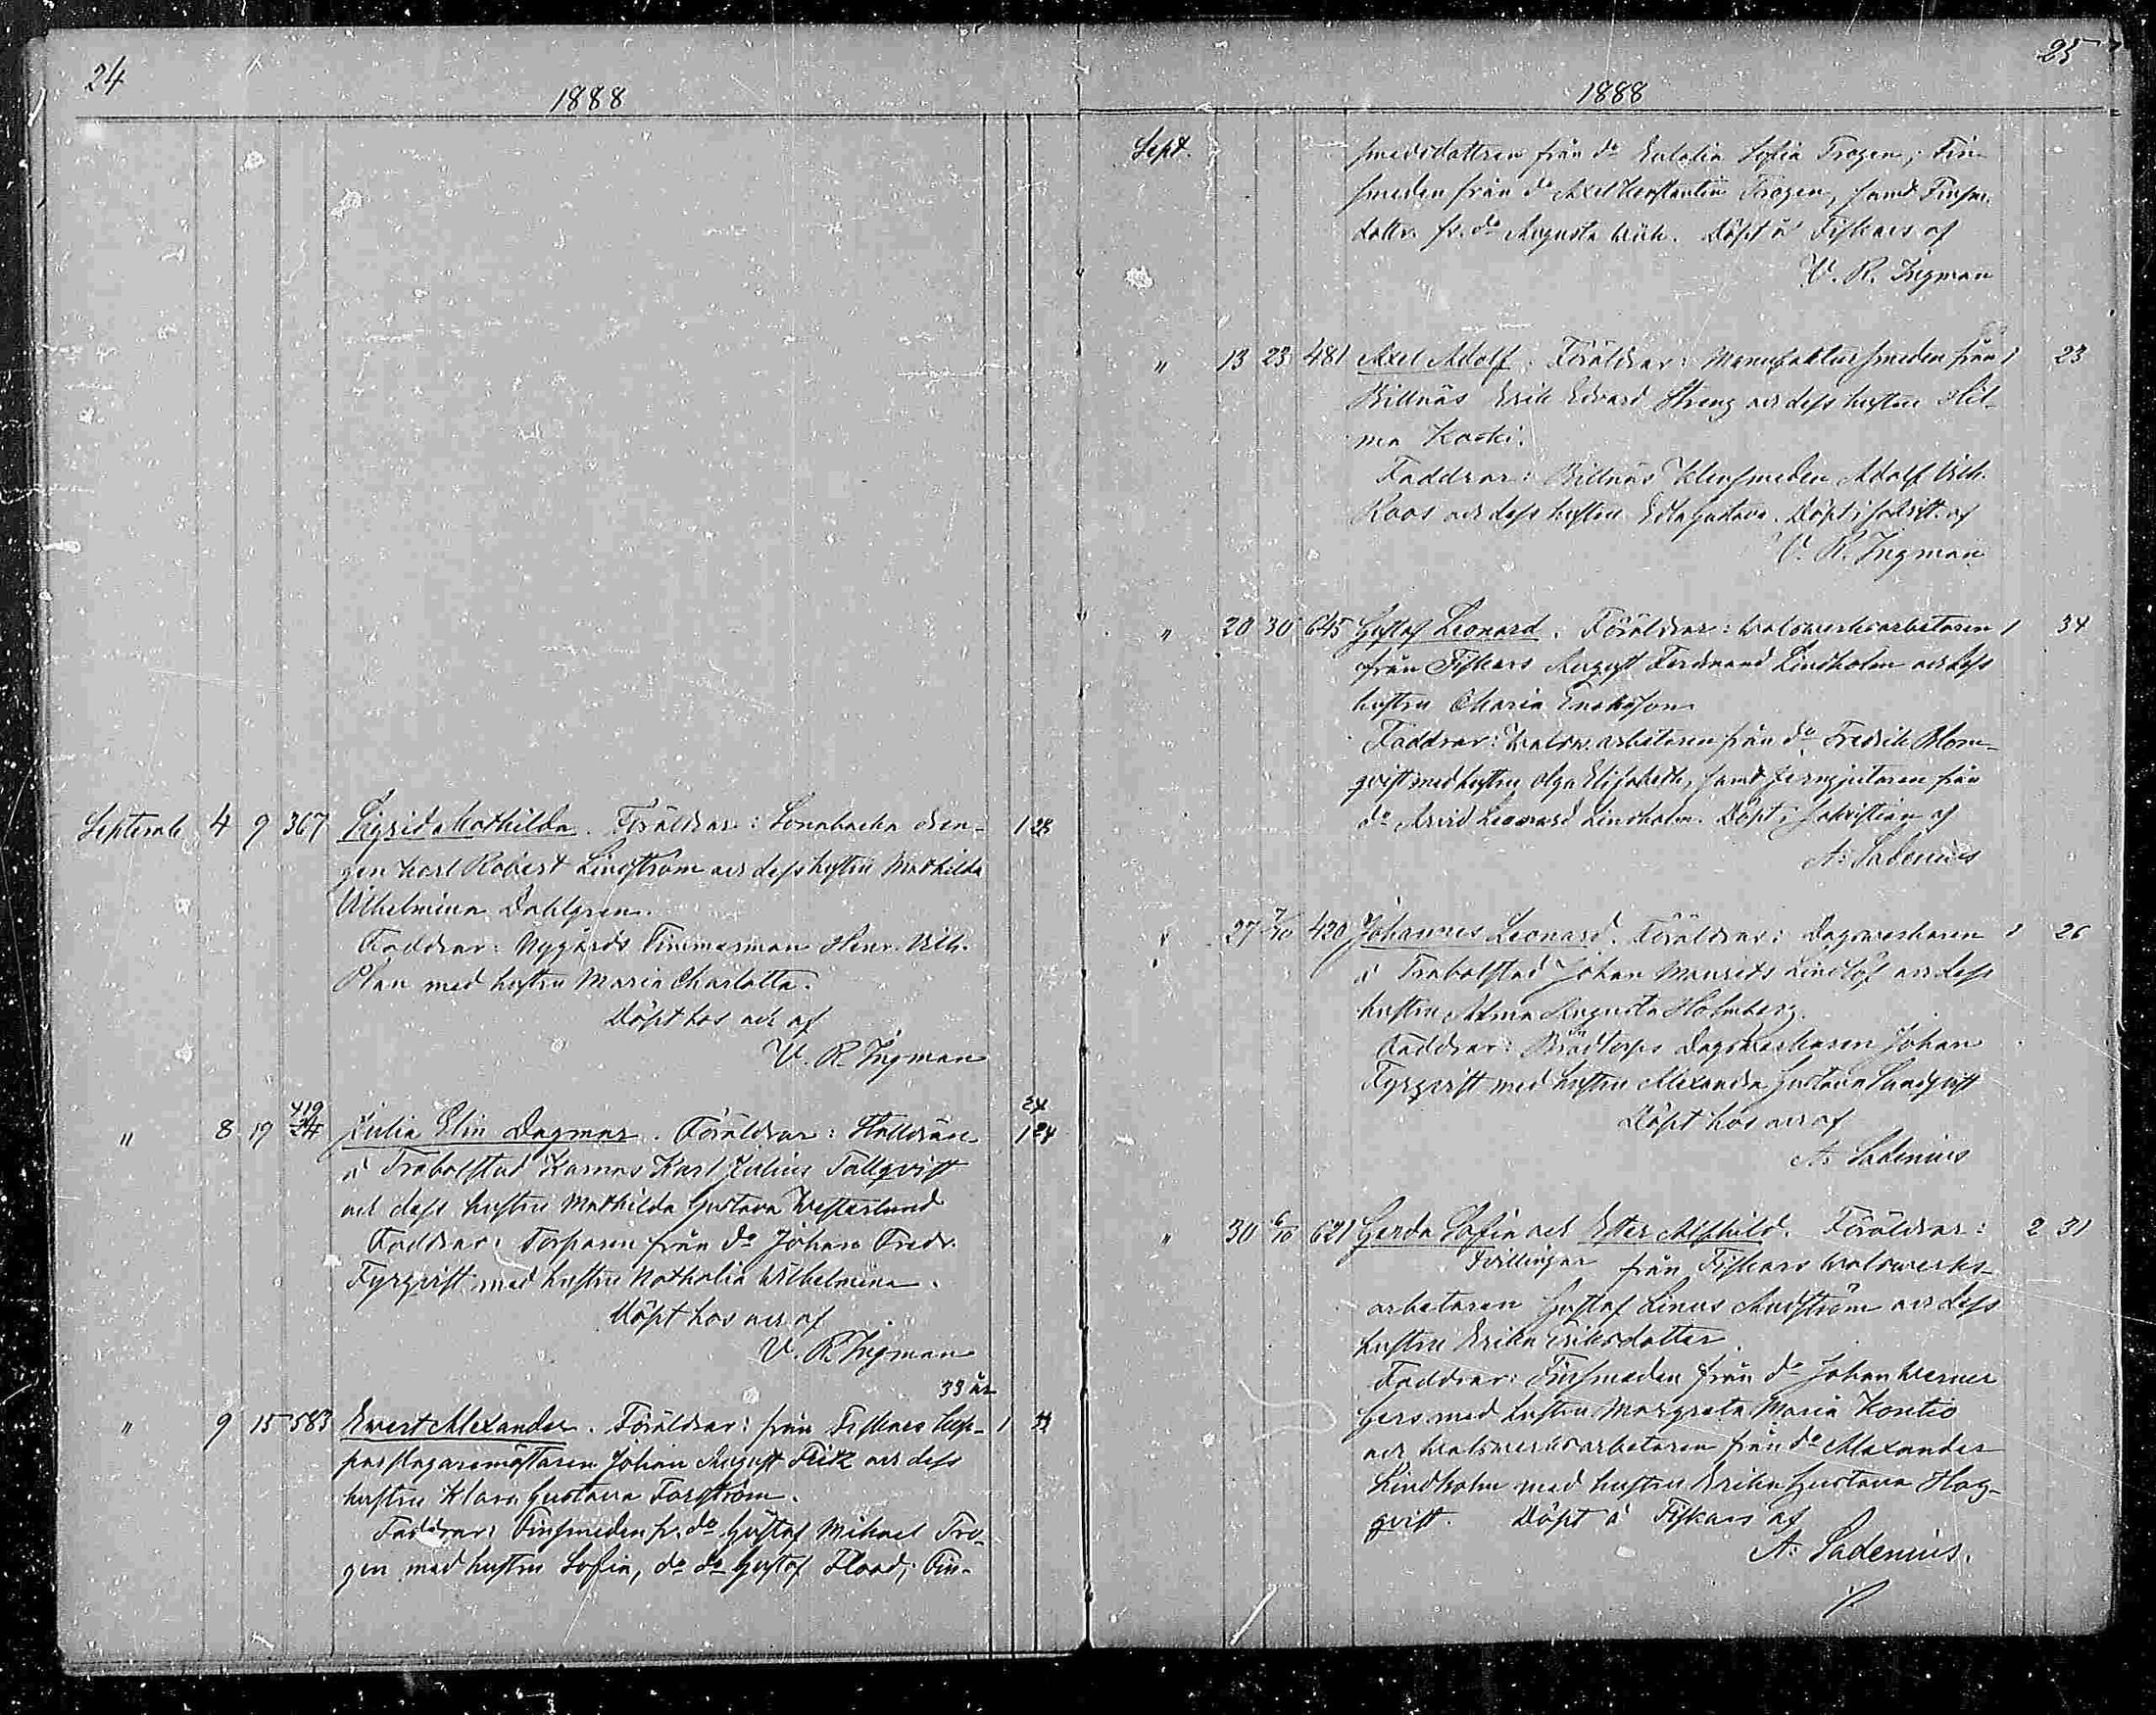 24
1888
Septemb 4 9 367 Sigrid Mathilda. Föräldrar: Sonabacka dren- 1 28
gen Karl Robert Lindström och dess hustru Mathilda
Vilhelmina Dahlgren.
Faddrar: Nygårds Timmerman Henr. Vilh.
Plan med hustru Maria Charlotta.
Döpt hos och af
V. R. Ingman
419 24
" 8 19 24 Julia Elin Dagmar. Föräldrar: Stalldräng 1 24
å Trabolstad Karnas Karl Julius Tallqvist
och dess hustru Mathilda Gustava Westerlund
Faddrar: Torparen från do Johan Fredr.
Fyrqvist med hustru Nathalia Wilhelmina.
Döpt hos och af
V. R. Ingman
33 år
" 9 15 583 Evert Alexander. Föräldrar: från Fiskars kop- 1
parslagaremästaren Johan August Fritz och dess
hustru Klara Gustava Forsström.
Faddrar: Finsmeden fr. do Gustaf Mikael Tro-
gen med hustru Sofia, do do Gustaf Flood; Fin-
25
1888
Sept. smedsdottren från do Eulalia Sofia Trogen; Fin-
smeden från do Axel Konstantin Trogen, samt Finsm.
dottr. fr. do Augusta Wik. Döpt å Fiskars af
V. R. Ingman
" 13 23 481 Axel Adolf. Föräldrar: Manufaktursmeden från 1 23
Billnäs Erik Edvard Streng och dess hustru Hil-
ma Koski.
Faddrar: Billnäs Klensmeden Adolf Vilh.
Roos och dess hustru Edla Gustava. Döpt i sakrist. af
V. R. Ingman
" 20 30 645 Gustaf Leonard. Föräldrar: Valsverksarbetaren 1 34
från Fiskars August Ferdinand Lindholm och dess
hustru Maria Enoksson
Faddrar: Valsv. arbetaren från do Fredrik Blom-
qvist med hustru Olga Elisabeth, samt jerngjutaren från
do Arvid Leonard Lindholm. Döpt i sakristian af
A. Ladenius
" 27 7/10 420 Johannes Leonard. Föräldrar: Dagsverkaren 1 26
å Trabolstad Johan Maurits Lindlöf och dess
hustru Alma Augusta Holmberg.
Faddrar: Brödtorps Dagsverkaren Johan
Fyrqvist med hustru Alexandra Gustava Sundqvist
Döpt hos och af
A. Ladenius
" 30 6/10 621 Gerda Sofia och Ester Alfhild. Föräldrar: 2 31
Tvillingar från Fiskars Valsverks-
arbetaren Gustaf Linus Modström och dess
hustru Erika Eriksdotter.
Faddrar: Finsmeden från do Johan Werner
Gers med hustru Margreta Maria Kontio
och Valsverksarbetaren från do Alexander
Lindholm med hustru Erika Gustava Hag-
qvist. Döpt å Fiskars af
A. Ladenius.